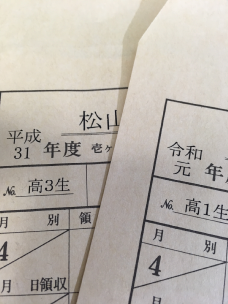 松山
平成
31年度 壱ヶ
№ 高3生
月 別 領
4
月 日領収
令和
元 年
№ 高1生
月 別
4
月